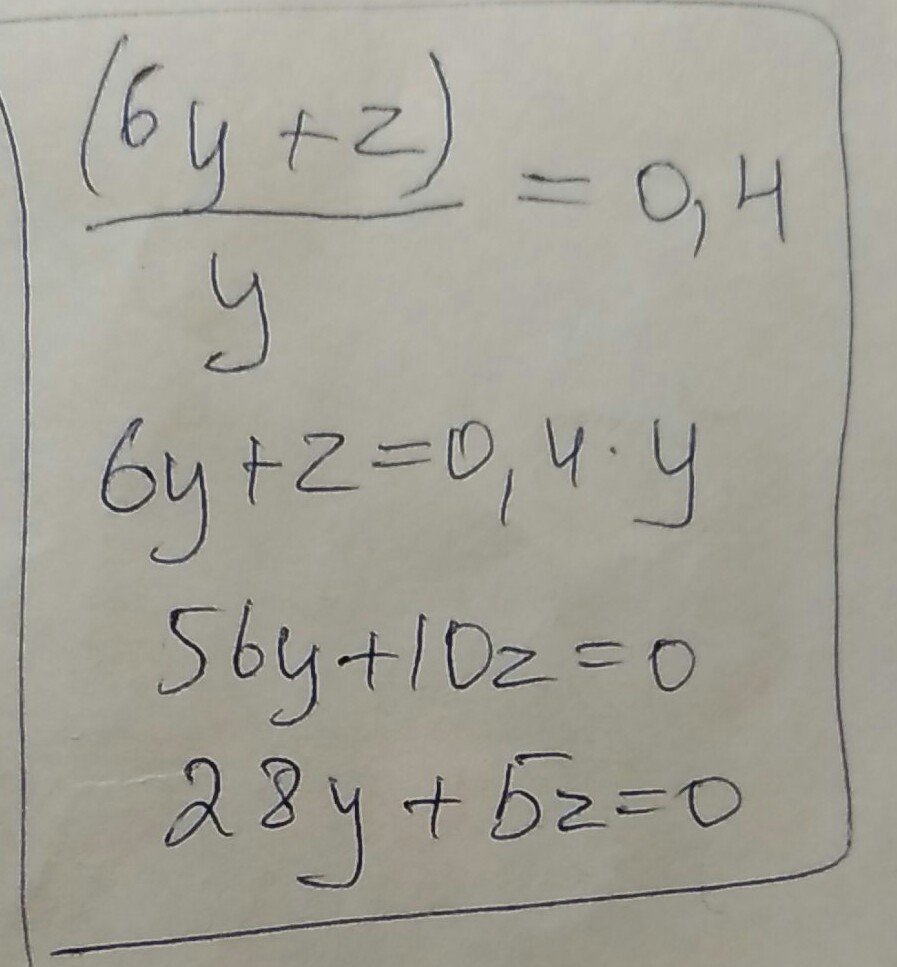 (6y+z)/y = 0,4
6y+z=0,4·y
56y+10z=0
28y+5z=0